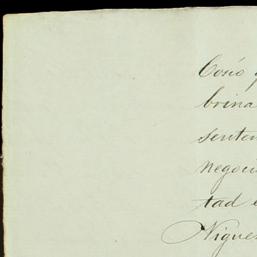 Cosió
brina
senten
negoci
tad
Nigue